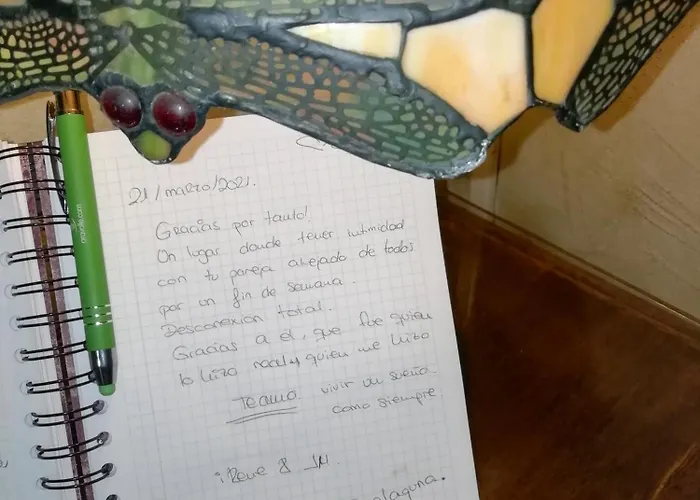 21/marzo/2021.
Gracias por tanto!
Un lugar donde tener intimidad
con tu pareja alejado de todos
por un fin de semana.
Desconexión total.
Gracias a el, que fue quien
lo hizo real y quien me hizo
Te amo vivir un sueño
como siempre.
iRene & JM.